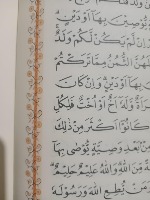 يُوصِينَ بِهَا أَوْ دَيْنٍ
إِنْ لَمْ يَكُنْ لَكُمْ وَلَدٌ
فَلَهُنَّ الثُّمُنُ مِمَّا تَرَكْتُمْ
بِهَا أَوْ دَيْنٍ وَإِنْ كَانَ
وَلَهُ أَخٌ أَوْ أُخْتٌ فَلِكُلِّ
كَانُوا أَكْثَرَ مِنْ ذَلِكَ
بَعْدِ وَصِيَّةٍ يُوصَى بِهَا
مِنَ اللَّهِ وَاللَّهُ عَلِيمٌ حَلِيمٌ
وَمَنْ يُطِعِ اللَّهَ وَرَسُولَهُ